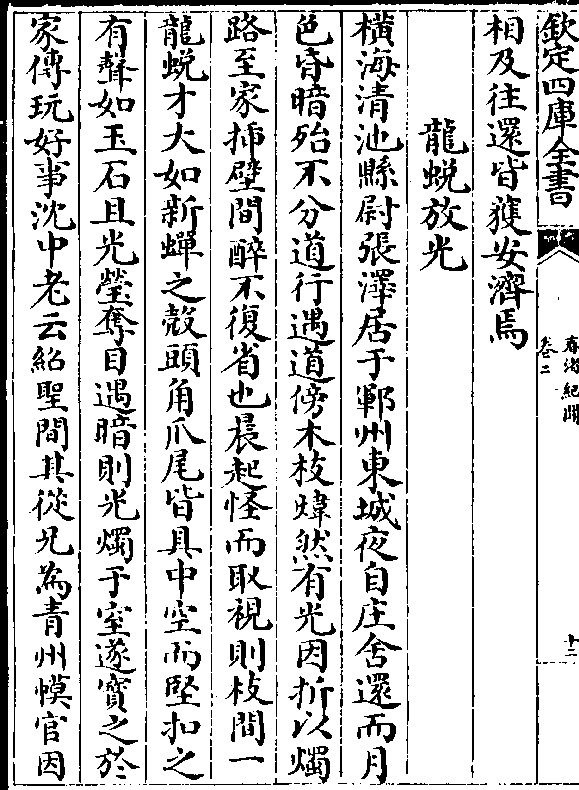 欽定四庫全書
春渚紀聞
卷二
十二
相及往還皆獲安濟焉
龍蛻放光
橫海清池縣尉張澤居于鄆州東城夜自庄舍還而月
色昏暗殆不分道行遇道傍木枝煒然有光因折以燭
路至家挿壁間醉不復省也晨起怪而取視則枝間一
龍蛻才大如新蟬之殻頭角爪尾皆具中空而堅扣之
有聲如玉石且光瑩奪目遇暗則光燭于室遂寳之於
家傳玩好事沈中老云紹聖間其從兄為青州幙官因